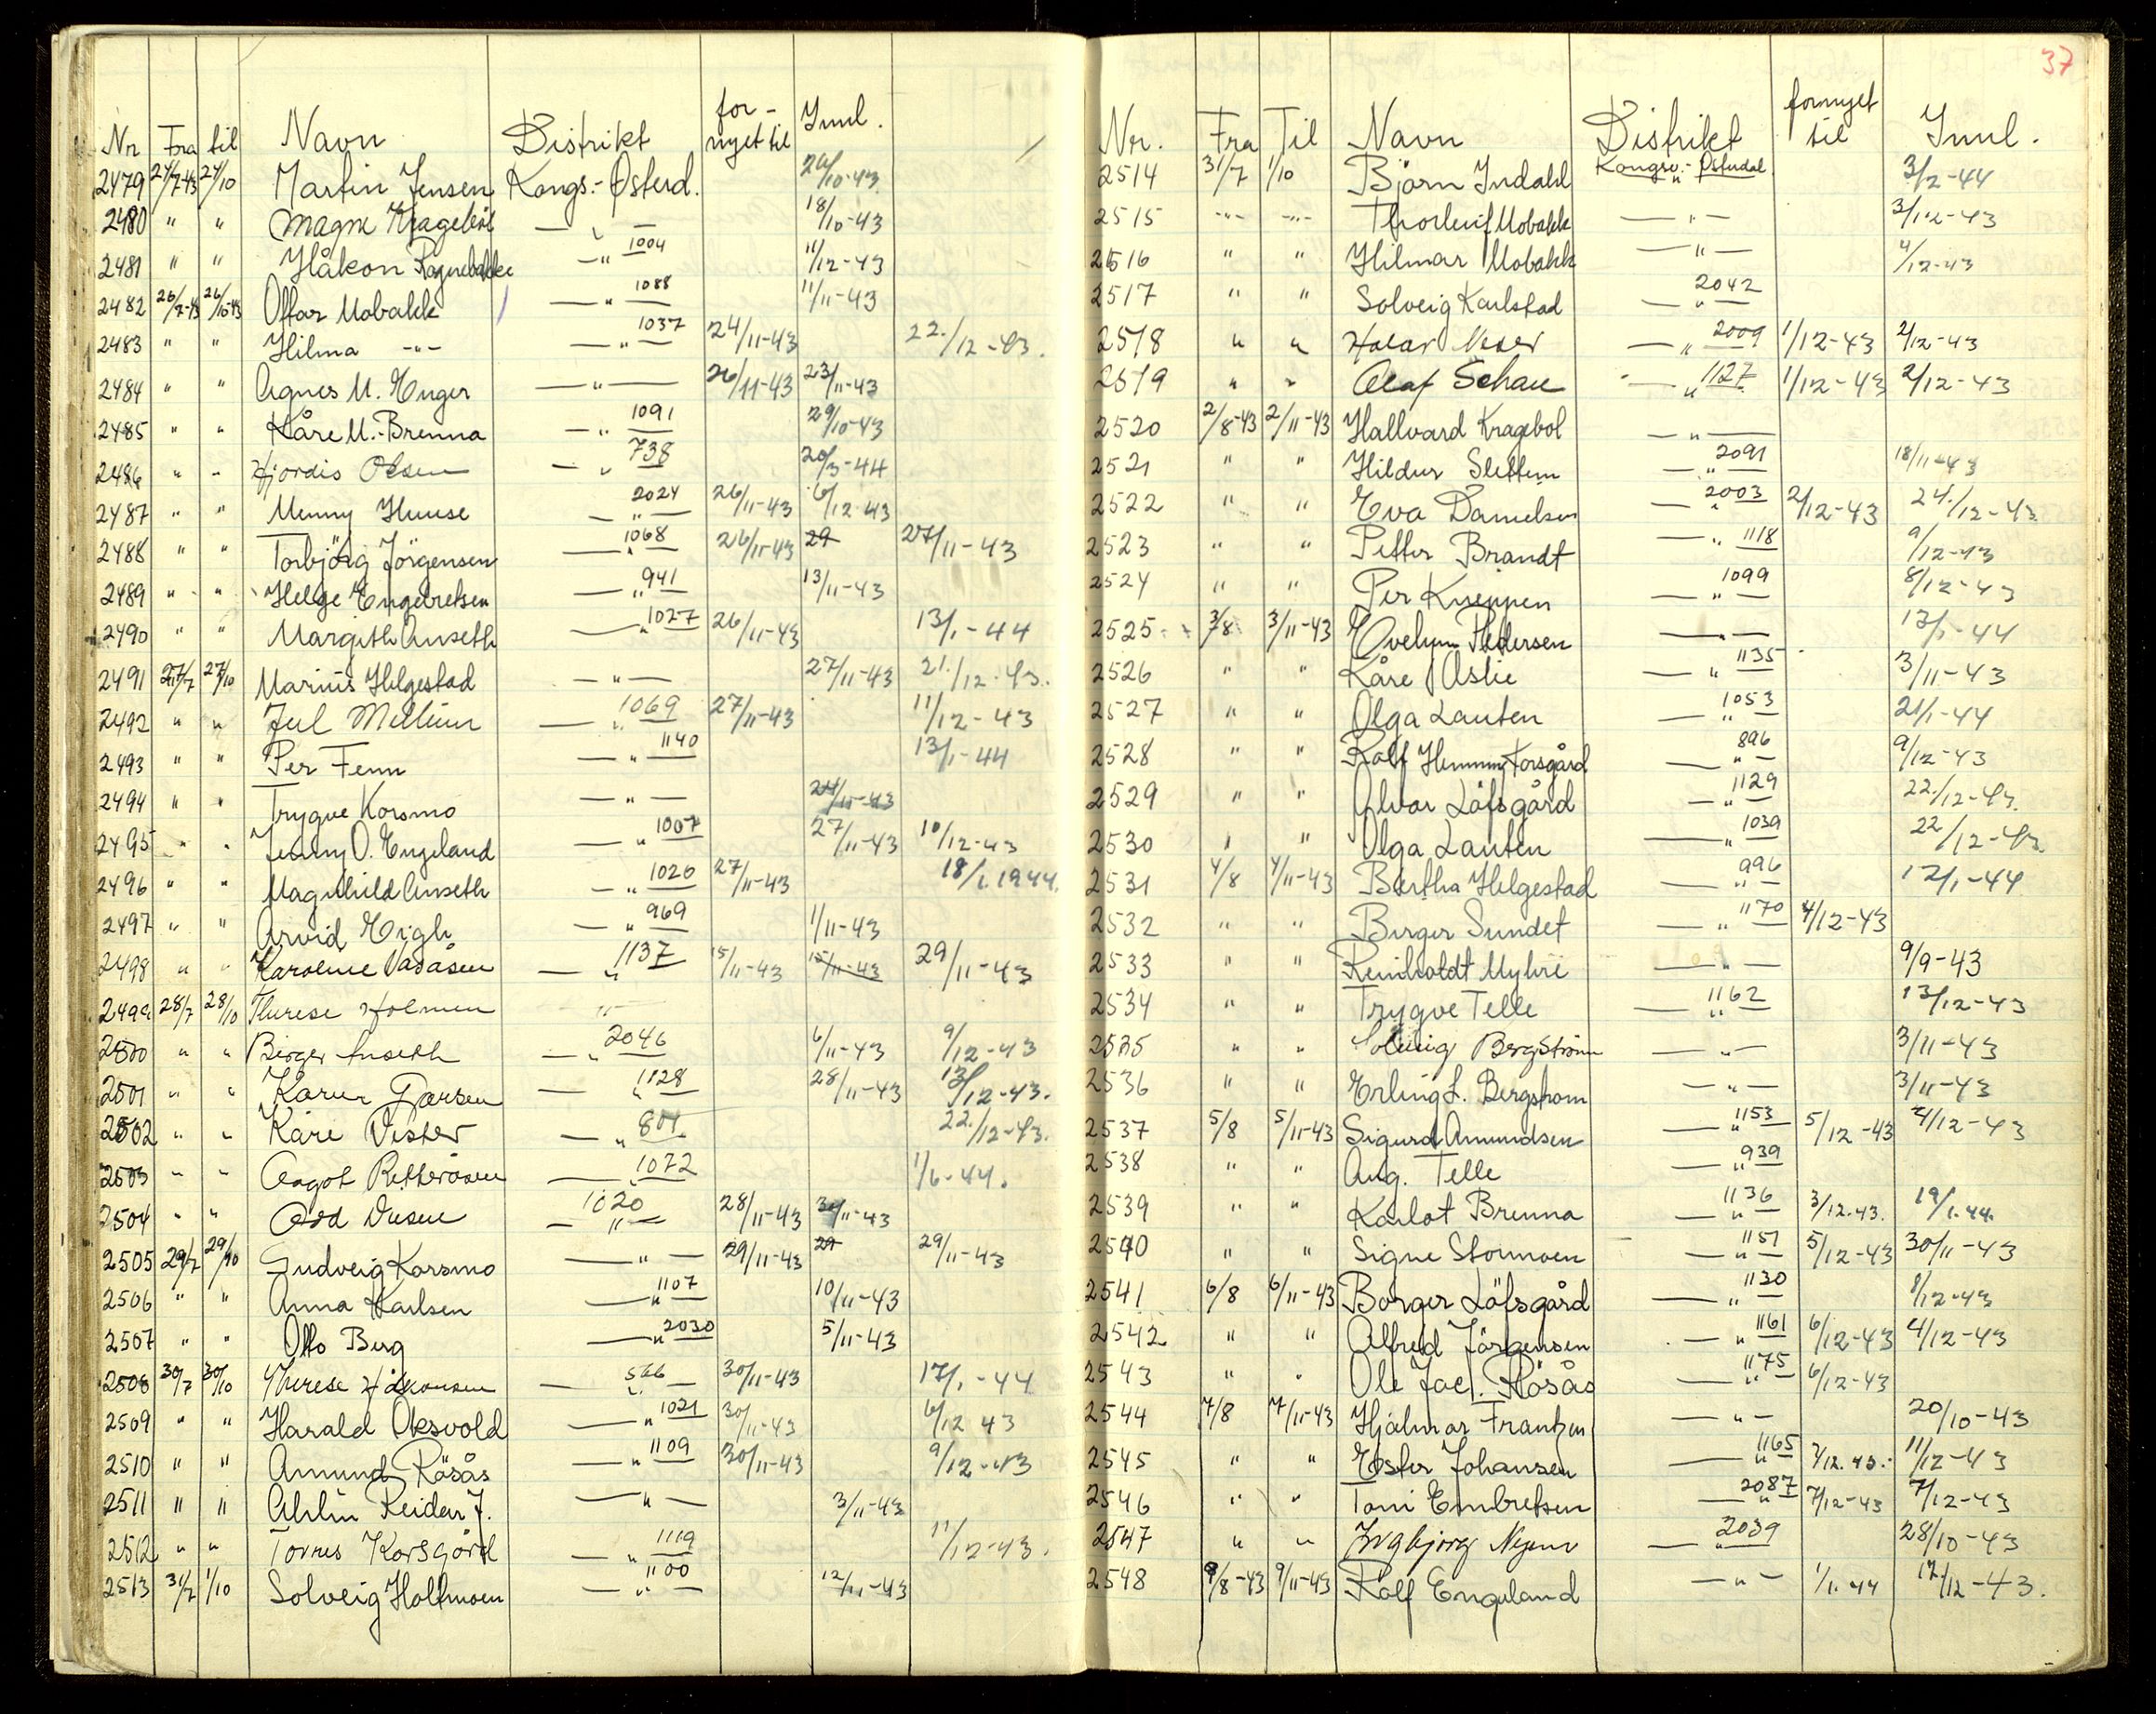 Nr Fra til Navn Distrikt for-nyet til Innl.
2479 24/7-43 24/10 Martin Jensen Kongs.-Østerd. 26/10-43
2480 " " Magne Kragebøl — " — 18/10-43
2481 " " Håkon Ragnebakke — " 1004 11/12-43
2482 26/7-43 26/10-43 Ottar Mobakk — " 1088 11/11-43
2483 " " Hilma -"- — " — 1037 24/11-43 22./12-43.
2484 " " Agnes M. Enger — " — 26/11-43 23/11-43
2485 " " Kåre M.-Brenna — " 1091 29/10-43
2486 " " Hjordis Olsen — " 738 20/3-44
2487 " " Menny Huuse — " 2024 26/11-43 6/12 43
2488 " " Torbjörg Jörgensen — " — 1068 26/11-43 29 27/11-43
2489 " " Helge Engebretsen — " 941 13/11-43
2490 " " Margith Anseth — " 1027 26/11-43 13/1-44
2491 27/7 27/10 Marius Helgestad — " — 27/11-43 21./12-43.
2492 " " Jul Mellum — " 1069 27/11-43 11/12-43
2493 " " Per Fenn — " 1140 13/1-44
2494 " " Trygve Korsmo — " — 24/11-43
2495 " " Jenny O. Engeland — " 1007 27/11-43 10/12-43
2496 " " Magnhild Anseth — " 1026 27/11-43 18/1.1944.
2497 " " Arvid Eigh — " 969 1/11-43
2498 " " Karoline Vasåsen — " 1137 15/11-43 15/11-43 29/11-43
2499 28/7 28/10 Therese Holmen — " —
2500 " " Birger Anseth — " 2046 6/11-43 9/12-43
2501 " " Karen Larsen — " 1128 28/11-43 13/12-43.
2502 " " Kåre Vester — " 804 22./12-43.
2503 " " Aagot Retteråsen — " 1072 1/6-44.
2504 " " Odd Dusen — " — 1020 28/11-43 30/11-43
2505 29/7 29/10 Gudveig Korsmo — " — 29/11-43 29 29/11-43
2506 " " Anna Karlsen — " 1107 10/11-43
2507 " " Otto Berg — " 2030 5/11-43
2508 30/7 30/10 Therese Håkonsen — " — 566 30/11-43 17/1-44
2509 " " Harald Oksvold — " 1021 30/11-43 6/12 43
2510 " " Amund Råsås — " 1109 30/11-43 9/12-43
2511 " " Ahlin Reidar J. — " — 3/11-43
2512 " " Torres Korsgård — " 1119 11/12-43.
2513 31/7 1/10 Solveig Holtmoen — " — 1100 12/11-43
37
Nr. Fra Til Navn Distrikt fornyet til Innl.
2514 31/7 1/10 Björn Indahl Kongsv.-Østerdal 3/2-44
2515 -"- -"- Thorleif Mobakk — " — 3/12-43
2516 " " Hilmar Mobakk — " — 4/12-43
2517 " " Solveig Karlstad — " — 2042
2518 " " — " 2009 1/12-43 2/12-43
2519 " " Olaf Schau — " 1127 1/12-43 2/12-43
2520 2/8-43 2/11-43 Hallvard Kragebøl — " —
2521 " " Hildur Slettum — " — 2091 18/11-43
2522 " " Eva Danielsen — " 2003 2/12-43 24./12-43
2523 " " Petter Brandt — " 1118 9/12-43
2524 " " Per Kneppen — " — 1099 8/12-43
2525 3/8 3/11-43 Evelynn Pedersen — " — 13/1-44
2526 " " Kåre Aslie — " 1135 3/11-43
2527 " " Olga Lauten — " — 1053 21/1-44
2528 " " Rolf Hemming Korsgård — " — 896 9/12-43
2529 " " Alvar Löfsgård — " — 1129 22./12-43.
2530 " " Olga Lauten — " — 1039 22/12-43.
2531 4/8 4/11-43 Bertha Helgestad — " — 996 12/1-44
2532 " " Birger Sundet — " 1170 4/12-43
2533 " " Reinholdt Myhre — " — 9/9-43
2534 " " Trygve Telle — " — 1162 13/12-43
2535 " " Solveig Bergström — " — 3/11-43
2536 " " Erling L. Bergstrom — " — 3/11-43
2537 5/8 5/11-43 Sigurd Amundsen — " 1153 5/12-43 4/12-43
2538 " " Aug. Telle — " 939
2539 " " Karlot Brenna — " — 1136 3/12.43. 19/1.44.
2540 " " Signe Stormoen — " — 1151 5/12-43 30/11-43
2541 6/8 6/11-43 Borger Löfsgård — " — 1130 1/12-43
2542 " " Alfred Jörgensen — " 1161 6/12-43 4/12-43
2543 " " Ole Jac. Råsås — " 1175 6/12-43
2544 7/8 7/11-43 Hjalmar Frantzen — " — 20/10-43
2545 " " Ester Johansen — " 1165 7/12.43. 11/12-43
2546 " " Toni Embretsen — " 2087 7/12-43 7/12-43
2547 " " Ingbjorg Nygen — " 2039 28/10-43
2548 9/8-43 9/11-43 Rolf Engeland — " — 1/1.44 17/12-43.